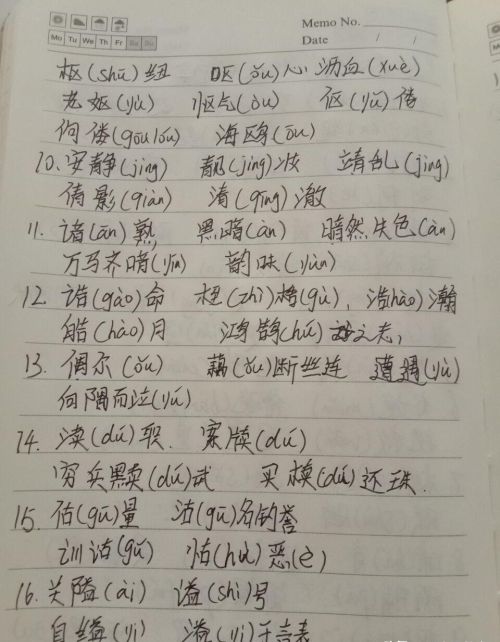 Memo No.
Mo Tu We Th Fr Sa Su Date / /
枢(shū)纽 呕(ǒu)心沥血(xuè)
老妪(yù) 怄气(òu) 伛(yǔ)偻
佝偻(gōulóu) 海鸥(ōu)
10、安静(jìng) 靓(jìng)妆 靖乱(jìng)
倩影(qiàn) 清(qīng)澈
11、谙(ān)熟 黑暗(àn) 暗然失色(àn)
万马齐喑(yīn) 韵味(yùn)
12、诰(gào)命 桎(zhì)梏(gù)、浩(hào)瀚
皓(hào)月 鸿鹄(hú)之志,
13、偶尔(ǒu) 藕(ǒu)断丝连 遭遇(yù)
向隅而泣(yú)
14、渎(dú)职、案牍(dú)
穷兵黩(dú)武 买椟(dú)还珠.
15、估(gū)量 沽(gū)名钓誉
训诂(gǔ) 怙(hù)恶(è)
16、关隘(ài) 谥(shì)号
自缢(yì) 溢(yì)于言表